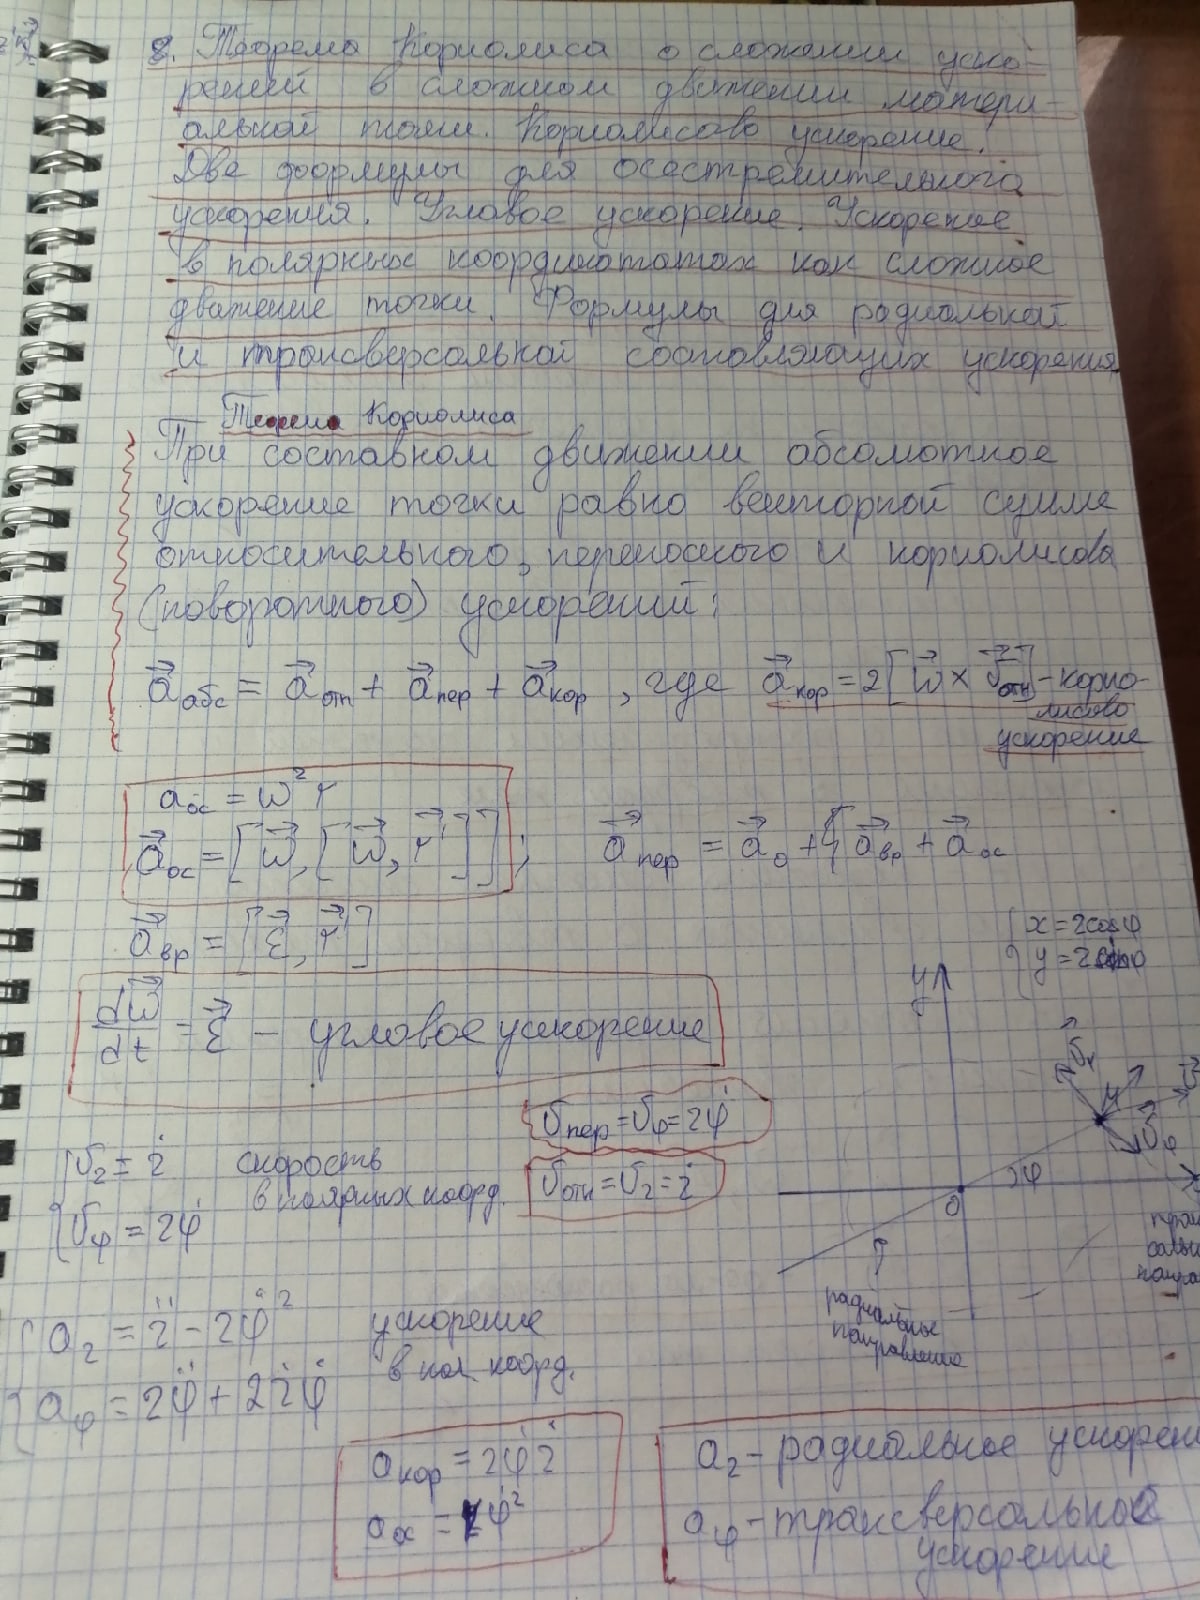 8. Теорема Кориолиса о сложении уско-
рений в сложном движении матери-
альной точки. Кориолисово ускорение.
Две формулы для осестремительного
ускорения. Угловое ускорение. Ускорение
в полярных координатах как сложное
движение точки. Формулы для радиальной
и трансверсальной составляющих ускорения
Теорема Кориолиса
При составном движении абсолютное
ускорение точки равно векторной сумме
относительного, переносного и кориолисова
(поворотного) ускорений:
a⃗абс = a⃗отн + a⃗пер + a⃗кор , где a⃗кор = 2[ω⃗ × v⃗отн] - корио-
лисово
ускорение
aос = ω² r
a⃗ос = [ω⃗, [ω⃗, r⃗]] ; a⃗пер = a⃗о + a⃗вр + a⃗ос
a⃗вр = [ε⃗, r⃗]
{ x = r cosφ
y = r sinφ
dω⃗/dt = ε⃗ – угловое ускорение
y
v⃗r
M
v⃗φ
φ
O
vпер = vφ = rφ̇
vотн = vr = ṙ
{ vr = ṙ скорость
vφ = rφ̇ в полярных коорд.
радиальное
направление
{ ar = r̈ - rφ̇² ускорение
aφ = rφ̈ + 2ṙφ̇ в пол. коорд.
aкор = 2φ̇ṙ
aос = rφ̇²
ar - радиальное ускорен
aφ - трансверсальное
ускорение